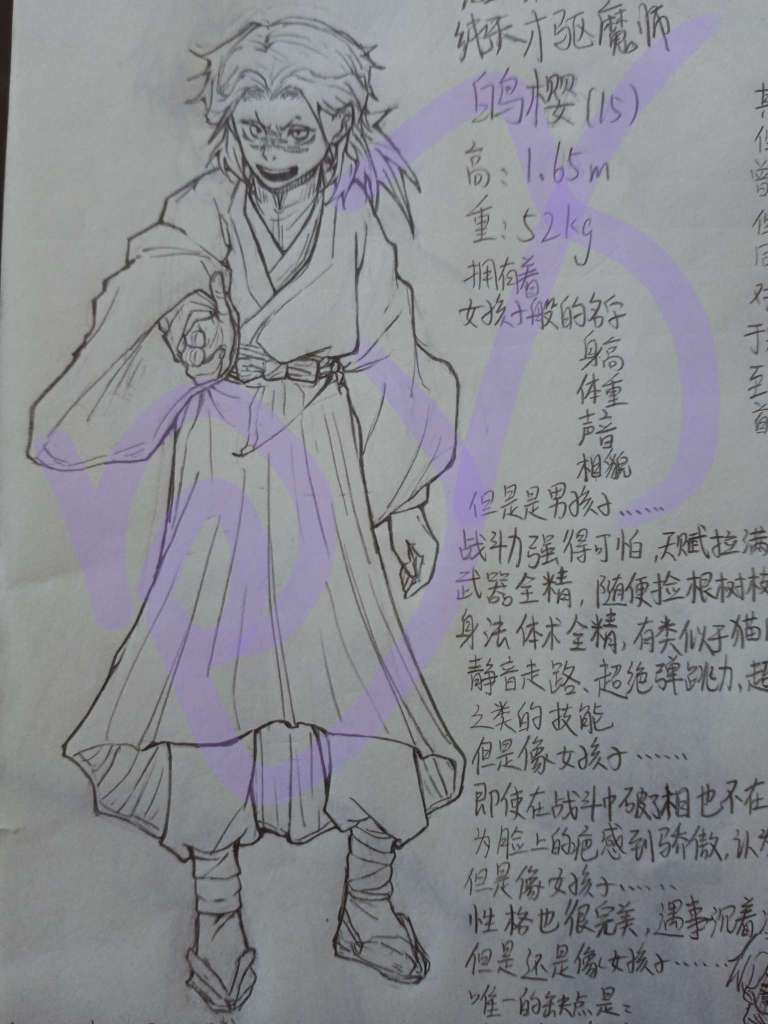 纯天才驱魔师
白鸣樱(15)
高：1.65m
重：52kg
拥有着
女孩子般的名字
身高
体重
声音
相貌
但是是男孩子……
战斗力强得可怕，天赋拉满
武器全精，随便捡根树枝
身法体术全精，有类似于猫
静音走路、超绝弹跳力，超
之类的技能
但是像女孩子……
即使在战斗中破了相也不在
为脸上的疤感到骄傲，认为
但是像女孩子……
性格也很完美，遇事沉着
但是还是像女孩子……
唯一的缺点是：
但
曾
但
同
对
于
至